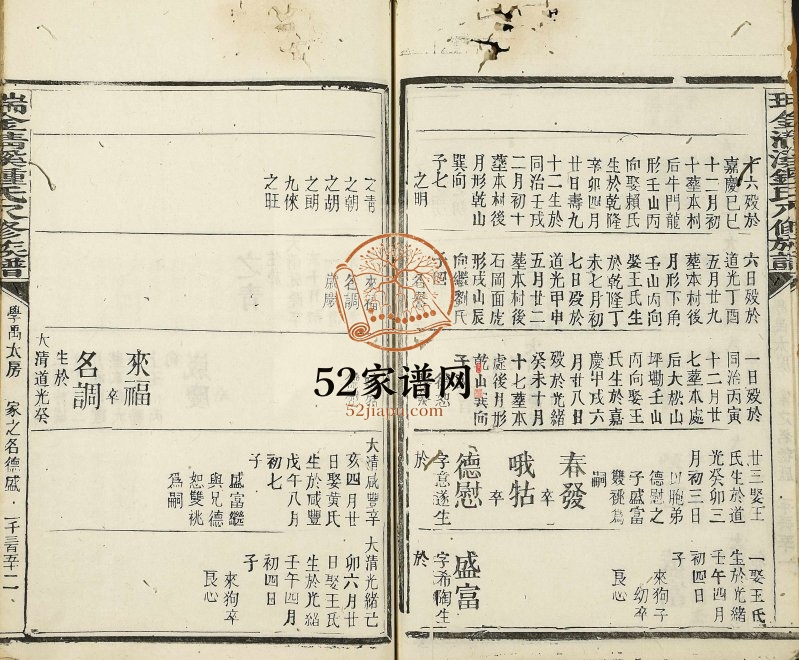 瑞金清溪鍾氏八修族譜
十六歿於
嘉慶己巳
十二月初
十葬本村
后牛門龍
形壬山丙
向娶賴氏
生於乾隆
辛卯四月
廿日壽九
十二生於
同治壬戌
二月初十
葬本村後
月形乾山
巽向
子七
之明
之青
之朝
之胡
之朗
九倈
之旺
六日歿於
道光丁酉
五月廿九
葬本村後
月形下角
壬山丙向
娶王氏生
於乾隆丁
未七月初
七日歿於
道光甲申
五月廿二
葬本村後
石岡面虎
形戌山辰
向繼劉氏
名調
一日歿於
同治丙寅
十二月廿
七葬本處
后大松山
坪墈壬山
丙向娶王
氏生於嘉
慶甲戌六
月廿八日
歿於光緒
癸未十月
十七葬本
處後月形
乾山巽向
子
來福
卒
名調
卒
生於
大清道光癸
廿三娶王
氏生於道
光癸卯三
月初三日
凶胞弟
德慰之
子盛富
雙祧為
嗣
春發
卒
哦牯
卒
德慰
字意遂生
於
大清咸豐辛
亥四月廿
日娶黃氏
生於咸豐
戊午八月
初七
子
盛富繼
與兄德
恕雙桃
爲嗣
一娶王氏
生於光緒
壬午四月
初四日
子
來狗子
幼卒
良心
盛富
字希陶生
於
大清光緒己
卯六月廿
日娶王氏
生於光緒
壬午四月
初四日
子
來狗卒
良心
瑞金清溪鍾氏八修族譜
學禹太房
家之名德盛
二千三百五十二
52家谱网
52jiapu.com